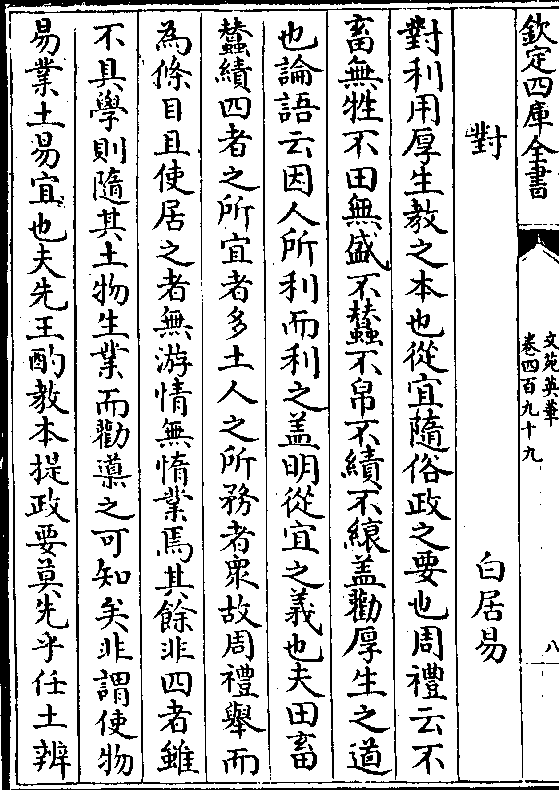 欽定四庫全書
文苑英華
卷四百九十九
八
對
白居易
對利用厚生教之本也從宜隨俗政之要也周禮云不
畜無牲不田無盛不蠶不帛不績不縗盖勸厚生之道
也論語云因人所利而利之盖明從宜之義也夫田畜
蠶績四者之所宜者多土人之所務者眾故周禮舉而
為條目且使居之者無游情無惰業焉其餘非四者雖
不具學則隨其土物生業而勸䕫之可知矣非謂使物
易業土易宜也夫先王酌教本提政要莫先乎任土辨